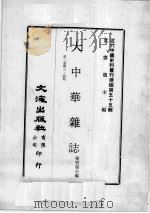 近代中國史料叢刊續編第五十五輯
沈雲龍主編
大中華雜誌
梁啓超主編
文海出版社有限公司印行